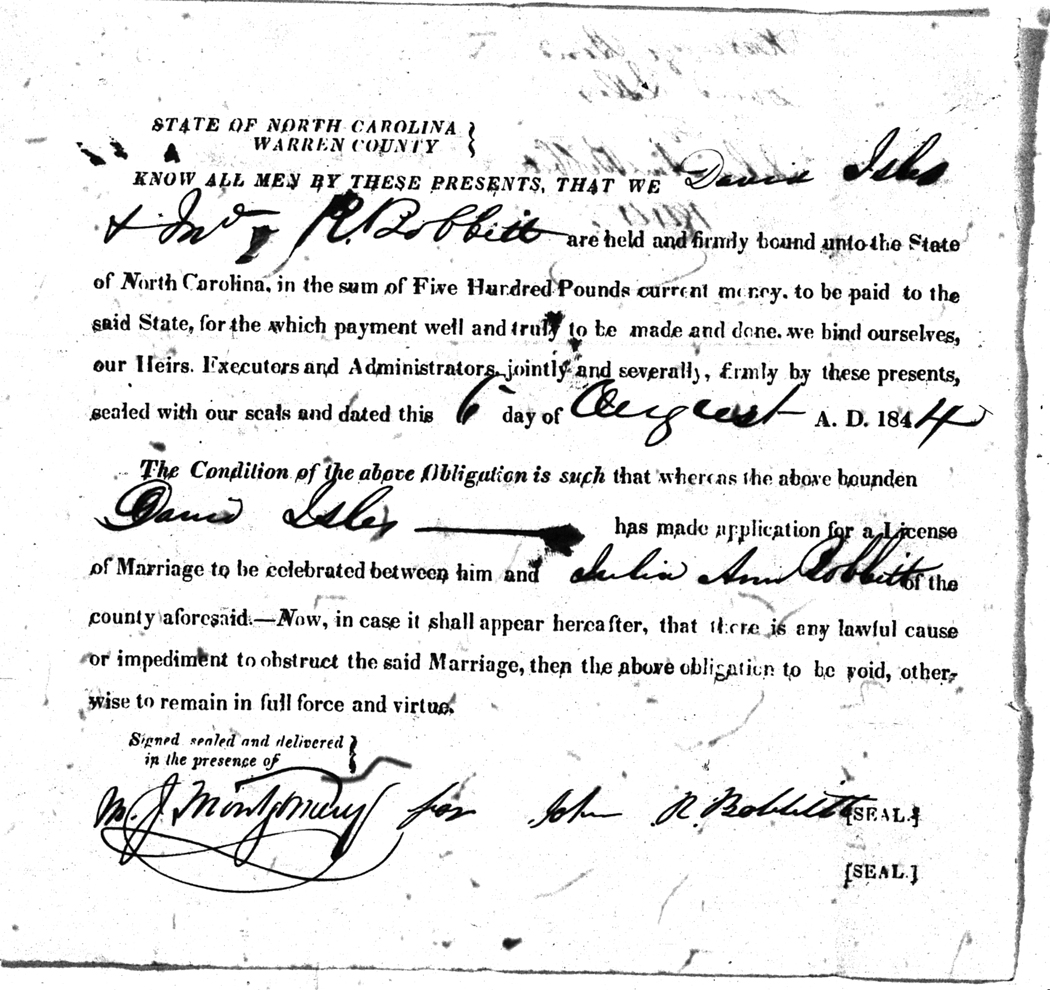 STATE OF NORTH CAROLINA }
WARREN COUNTY
KNOW ALL MEN BY THESE PRESENTS, THAT WE David Isles
& Jno R. Bobbitt are held and firmly bound unto the State
of North Carolina, in the sum of Five Hundred Pounds current money, to be paid to the
said State, for the which payment well and truly to be made and done, we bind ourselves,
our Heirs, Executors and Administrators, jointly and severally, firmly by these presents,
sealed with our seals and dated this 6 day of August A. D. 1844
The Condition of the above Obligation is such that whereas the above bounden
David Isles has made application for a License
of Marriage to be celebrated between him and Julia Ann Bobbitt of the
county aforesaid.—Now, in case it shall appear hereafter, that there is any lawful cause
or impediment to obstruct the said Marriage, then the above obligation to be void, other-
wise to remain in full force and virtue.
Signed sealed and delivered }
in the presence of
M. J. Montgomery for John R. Bobbitt [SEAL.]
[SEAL.]